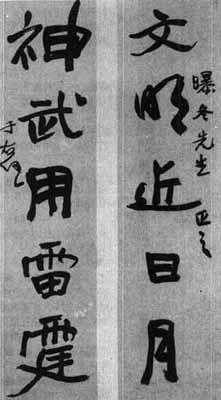 文明近日月
曝冬先生 正之
神武用雷霆
于右任